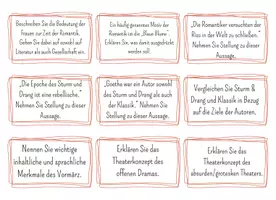 Beschreiben Sie die Bedeutung
der Frauen zur Zeit der Romantik.
Gehen Sie dabei auf sowohl auf
Literatur als auch Gesellschaft ein.
Ein häufig genanntes Motiv der
Romantik ist die „Blaue Blume“.
Erklären Sie, was damit ausgedrückt
werden soll.
„Die Romantiker versuchten den
Riss in der Welt zu schließen.“
Nehmen Sie Stellung zu dieser
Aussage.
„Die Epoche des Sturm und
Drang ist eine rebellische.“
Nehmen Sie Stellung zu dieser
Aussage.
„Goethe war ein Autor sowohl
des Sturm und Drang als auch
der Klassik.“ Nehmen Sie
Stellung zu dieser Aussage.
Vergleichen Sie Sturm &
Drang und Klassik in Bezug
auf die Ziele der Autoren.
Nennen Sie wichtige
inhaltliche und sprachliche
Merkmale des Vormärz.
Erklären Sie das
Theaterkonzept des
offenen Dramas.
Erklären Sie das
Theaterkonzept des
absurden/grotesken Theaters.